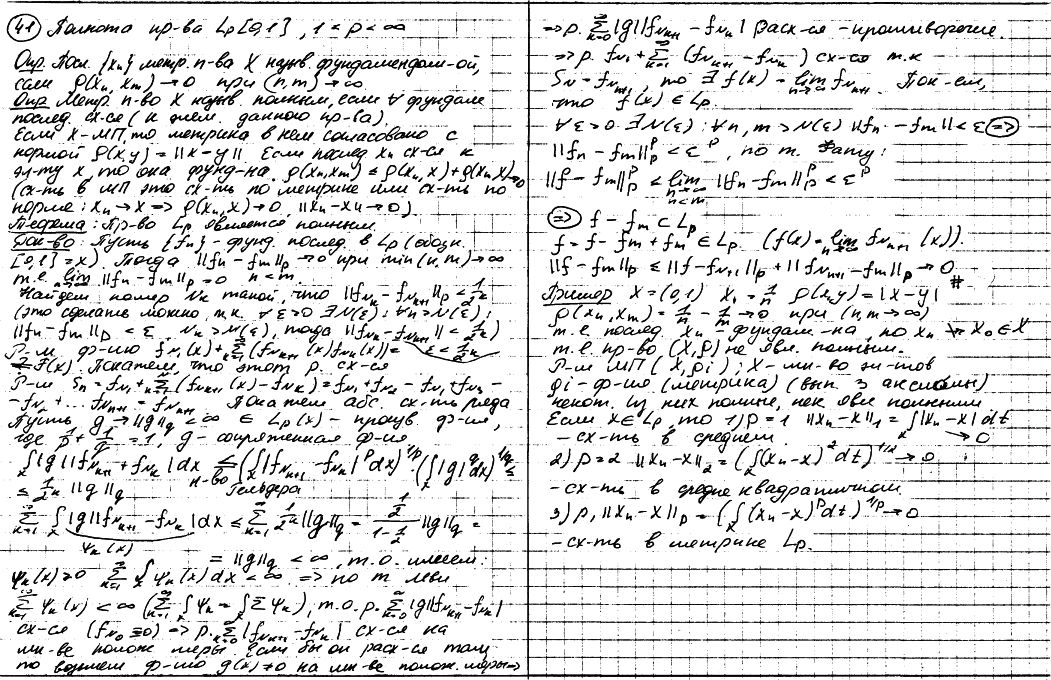 41 Полнота пр-ва Lp[0,1], 1<p<∞
Опр. Посл. {xn} метр. п-ва X назыв. фундаментал-ой,
если ρ(xn, xm)→0 при (n,m)→∞
Опр Метр. п-во X назыв. полным, если ∀ фундам
послед. сх-ся (к элем. данного пр-ва),
Если X-МП, то метрика в нем согласовано с
нормой ρ(x,y)=||x-y||. Если послед xn сх-ся к
эл-ту x, то она фунд-на. ρ(xn,xm)≤ρ(xn,x)+ρ(xm,x)→0
(сх-ть в МП это сх-ть по метрике или сх-ть по
норме: xn→x => ρ(xn,x)→0 ||xn-x||→0)
Теорема: Пр-во Lp является полным.
Док-во: Пусть {fn} - фунд. послед. в Lp (обозн.
[0,1]=x). Тогда ||fn-fm||p→0 при min(n,m)→∞
т.е. lim ||fn-fm||p=0 n<m.
Найдем номер Nk такой, что ||fNk-fNk+1||p<1/2^k
(это сделать можно, т.к. ∀ε>0 ∃N(ε): ∀n>N(ε):
||fn-fm||p<ε, Nk>N(ε), тогда ||fNk-fNk+1||<1/2^k)
Р-м. ф-цию fN1(x)+∑(fNk+1(x)fNk(x))= ε<1/2^k
= F(x). Покажем, что этот р. сх-ся
Р-м Sn=fN1+∑(fNk+1(x)-fNk)=fN1+fN2-fN1+fN3-
-fN2+...fNn+1=fNn+1. Покажем абс. сх-ть ряда
Пусть g→||g||q<∞ ∈Lp(x) - произв. ф-ия,
где 1/p+1/q=1, g- сопряженная ф-ия
∫|g||fNk+1+fNk|dx ≤ (∫|fNk+1-fNk|^p dx)^1/p · (∫|g|^q dx)^1/q ≤
н-во Гельдера
≤ 1/2^k ||g||q
∑ ∫|g||fNk+1-fNk|dx ≤ ∑ 1/2^k ||g||q = (1/2)/(1-1/2) ||g||q =
ψk(x) = ||g||q<∞, т.о. имеем:
ψk(x)≥0 ∑∫ψk(x)dx<∞ => по т Леви
∑ψk(x)<∞ (∑∫ψk=∫∑ψk), т.о. р. ∑|g||fNk+1-fNk|
сх-ся (fN0≡0) => р. ∑|fNk+1-fNk| сх-ся на
мн-ве полож меры. Если бы он расх-ся там
то возьмем ф-цию g(x)≠0 на мн-ве полож. меры=>
=> р. ∑|g||fNk+1-fNk| расх-ся - противоречие.
=> р. fN1+∑(fNk+1-fNk) сх-ся т.к
SN=fNn+1, то ∃ f(x)=lim fNn+1. Пок-ем,
что f(x)∈Lp.
∀ε>0 ∃N(ε): ∀n,m>N(ε) ||fn-fm||<ε =>
||fn-fm||p^p<ε^p, по т. Фату:
||f-fm||p^p < lim ||fn-fm||p^p<ε^p
n→∞
n<m
=> f-fm⊂Lp
f=f-fm+fm∈Lp (f(x)=lim fNn+1(x)).
||f-fm||p≤||f-fNn+1||p+||fNn+1-fm||p→0 #
Пример X=(0,1) Xn=1/n ρ(x,y)=|x-y|
ρ(xn,xm)=1/n-1/m→0 при (n,m→∞)
т.е. послед. xn - фундам-на, но xn ↛ x0∈X
т.е. пр-во (X,ρ) не явл. полным.
Р-м МП(X,ρi); X-мн-во эл-тов
ρi-ф-ия (метрика) (вып. 3 аксиомы)
некот. из них полные, нек явл полными
Если x∈Lp, то 1) p=1 ||xn-x||1=∫|xn-x|dt→0
-сх-ть в среднем.
2) p=2 ||xn-x||2=(∫(xn-x)^2dt)^1/2→0
-сх-ть в средне квадратичном
3) p, ||xn-x||p=(∫(xn-x)^p dt)^1/p→0
-сх-ть в метрике Lp.